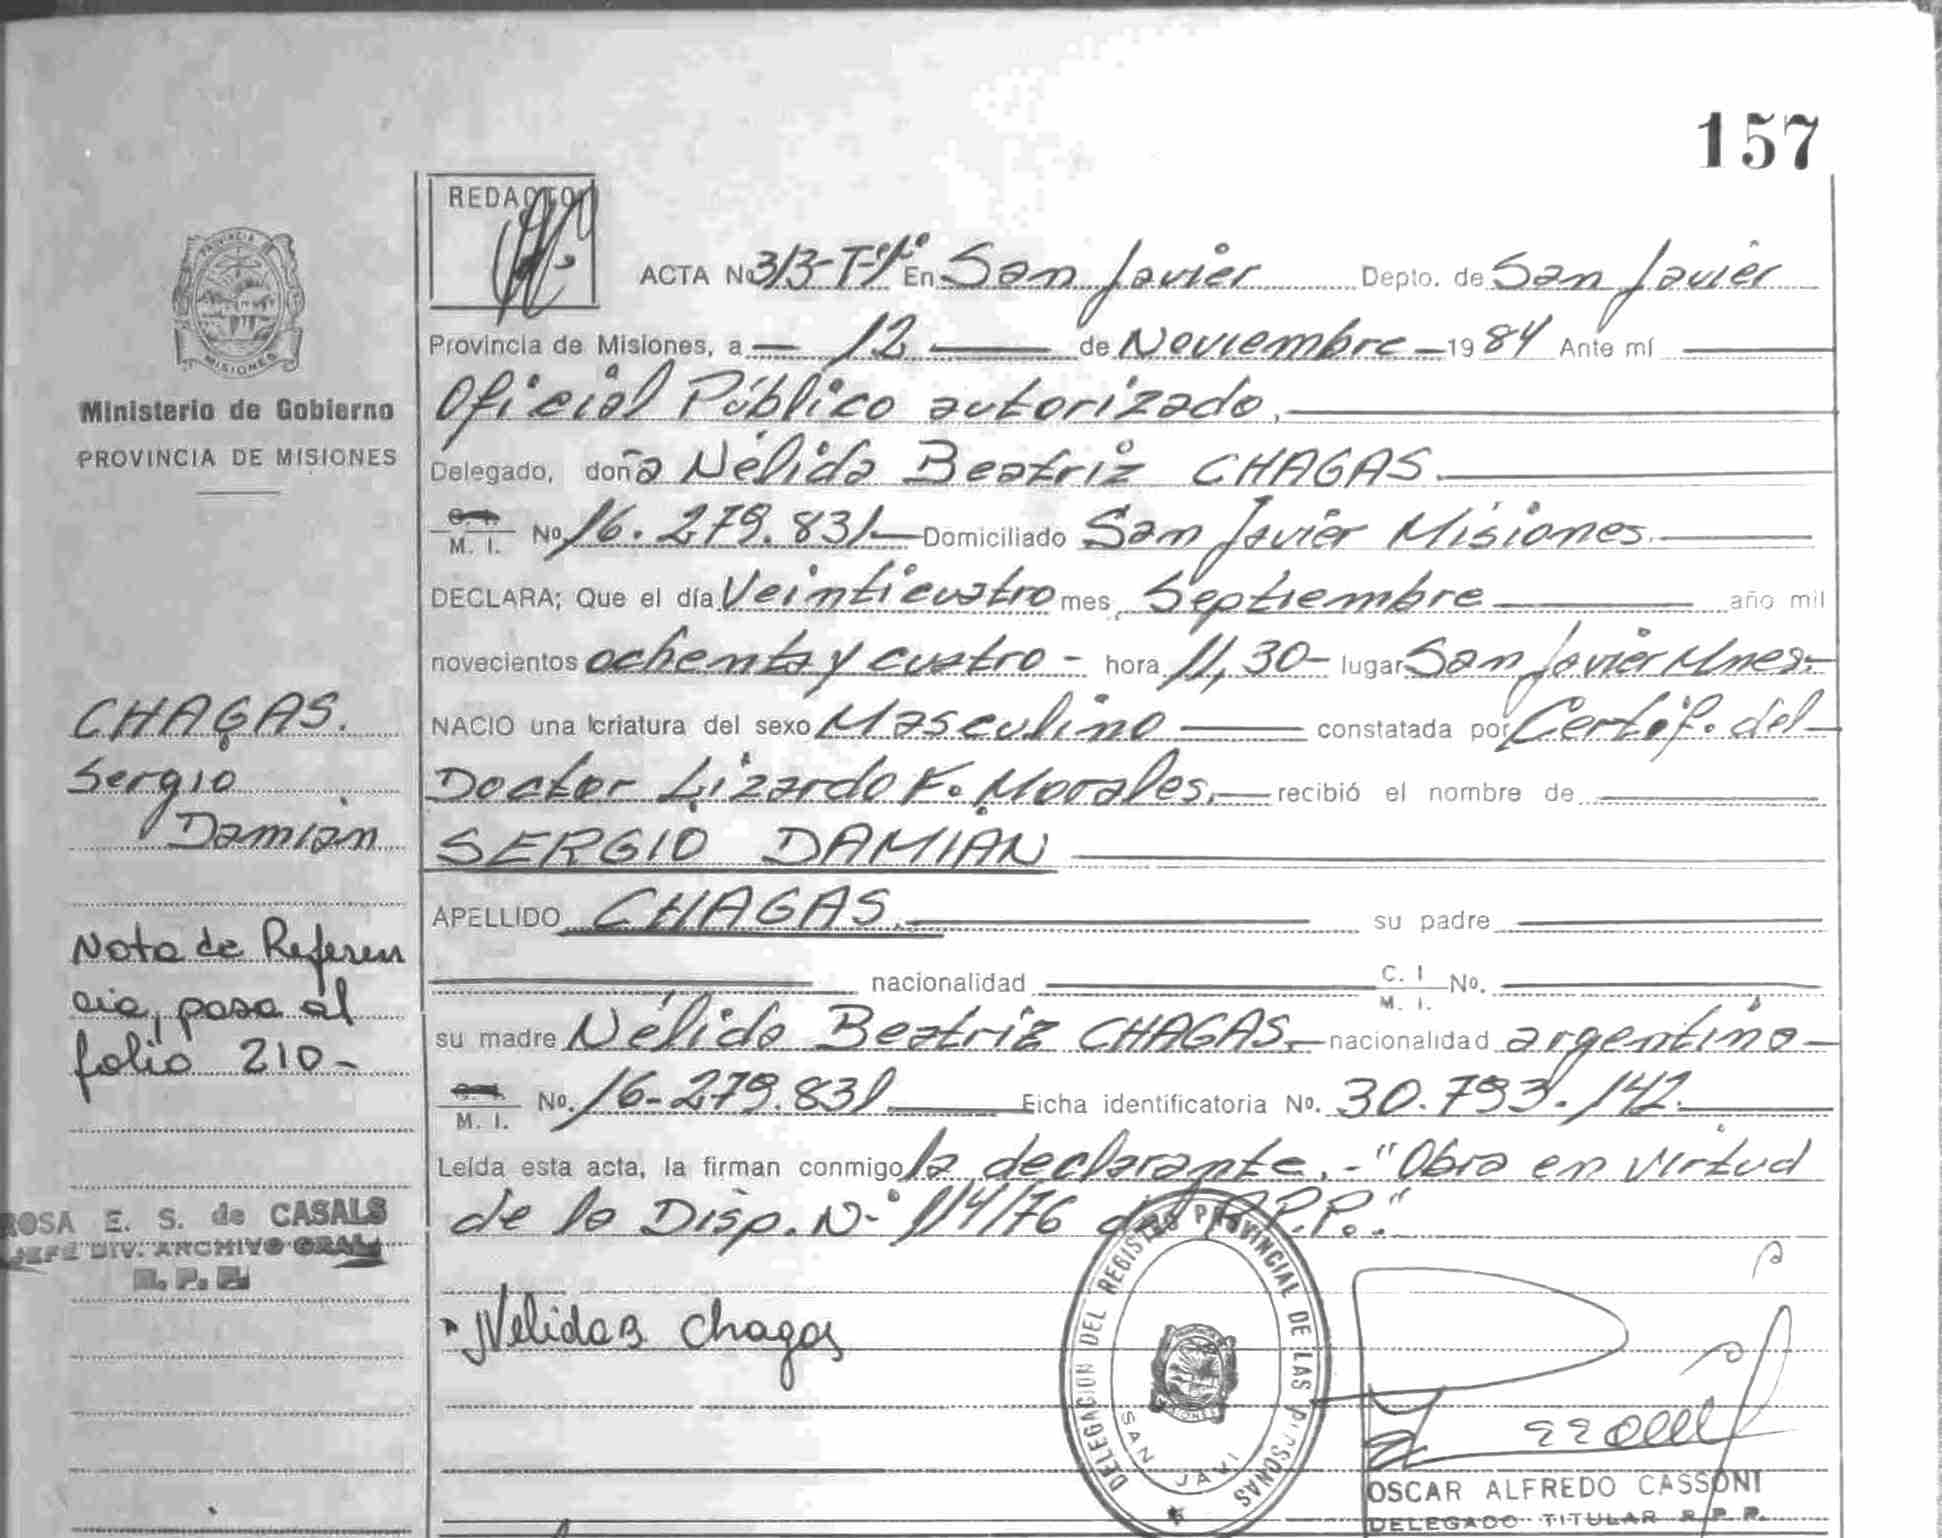 157
REDACTOR
ACTA No 313-Tº1º En San Javier Depto. de San Javier
Provincia de Misiones, a 12 de Noviembre 1984 Ante mí
Oficial Público autorizado,
Delegado, doña Nélida Beatriz CHAGAS.
M. I. Nº 16.279.831 Domiciliado San Javier Misiones.
DECLARA; Que el día Veinticuatro mes Septiembre año mil
novecientos ochenta y cuatro - hora 11,30- lugar San Javier Mnes.
NACIO una criatura del sexo Masculino constatada por Certif. del
Doctor Lizardo F. Morales. recibió el nombre de
SERGIO DAMIÁN
APELLIDO CHAGAS. su padre
nacionalidad C. I. M. I. Nº.
su madre Nélida Beatriz CHAGAS, nacionalidad argentina
M. I. Nº. 16-279.831 Ficha identificatoria Nº. 30.793.142.
Leída esta acta, la firman conmigo la declarante.-"Obra en virtud
de la Disp. Nº 114/76 del R.P.P."
Nelida B. Chagas
DELEGACION DEL REGISTRO PROVINCIAL DE LAS PERSONAS
SAN JAVI
MISIONES
OSCAR ALFREDO CASSONI
DELEGADO TITULAR R.P.P.
PROVINCIA DE
MISIONES
Ministerio de Gobierno
PROVINCIA DE MISIONES
CHAGAS.
Sergio
Damián
Nota de Referen
cia, pasa al
folio 210-
ROSA E. S. de CASALS
JEFE DIV. ARCHIVO GRAL.
R. P. P.